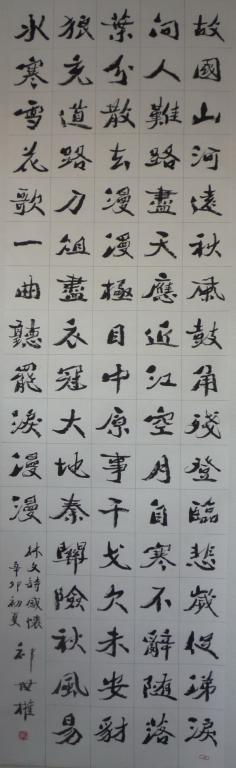 故國山河遠秋風鼓角殘登臨悲歲促涕淚
向人難路盡天應近江空月自寒不辭隨落
葉分散去漫漫極目中原事干戈久未安豺
狼充道路刀俎盡衣冠大地秦關險秋風易
水寒雪花歌一曲聽罷淚漫漫
林文詩感懷
辛卯初夏
世權